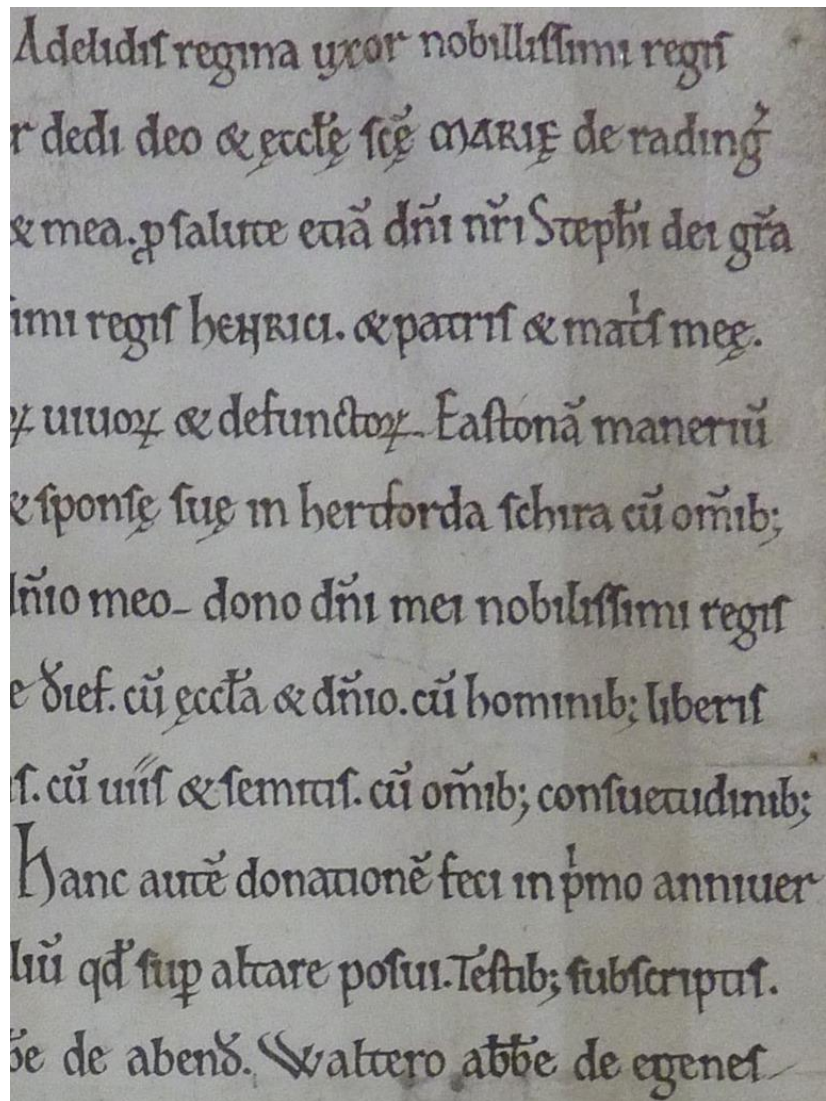 Adelidis regina uxor nobillissimi regis
r dedi deo & ęccłę scę MARIĘ de rading̃
& mea. ꝓ salute etiā dñi nr̃i Stephi dei gr̃a
imi regis hENRICI. & patris & mat̍s meę.
ꝝ uiuoꝝ & defunctoꝝ. Eastonā maneriū
& sponsę suę in hertforda schira cū om̃ib;
dñio meo dono dñi mei nobilissimi regis
e dief. cū ęccła & dñio. cū hominib; liberis
s. cū uiis & semitis. cū om̃ib; consuetudinib;
hanc autē donationē feci in p̍mo anniuer
liū qđ sup̱ altare posui. Testib; subscriptis.
ƀe de abend̃. Waltero abƀe de egenes